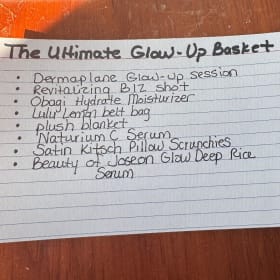 The Ultimate Glow-Up Basket
• Dermaplane Glow-up session
• Revitalizing B12 shot
• Obagi Hydrate Moisturizer
• Lulu Lemon belt bag
• plush blanket
• Naturium C Serum
• Satin Kitsch Pillow Scrunchies
• Beauty of Joseon Glow Deep Rice
Serum